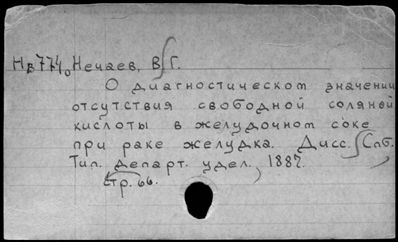 Нв774₀ Нечаев, В. Г.
О диагностическом значении
отсутствия свободной соляной
кислоты в желудочном соке
при раке желудка. Дисс. Спб.
Тип. департ. удел., 1887.
стр. 66.